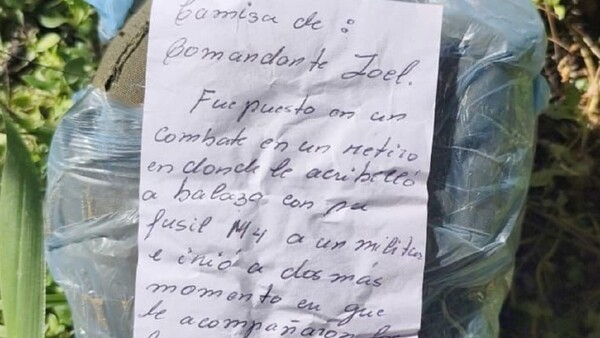 Camisa de :
Comandante Joel.
Fue puesto en un
combate en un retiro
en donde le acribelló
a balazo con pu
fusil M4 a un militar
e inió a dos mas
momento en que
le acompañaron